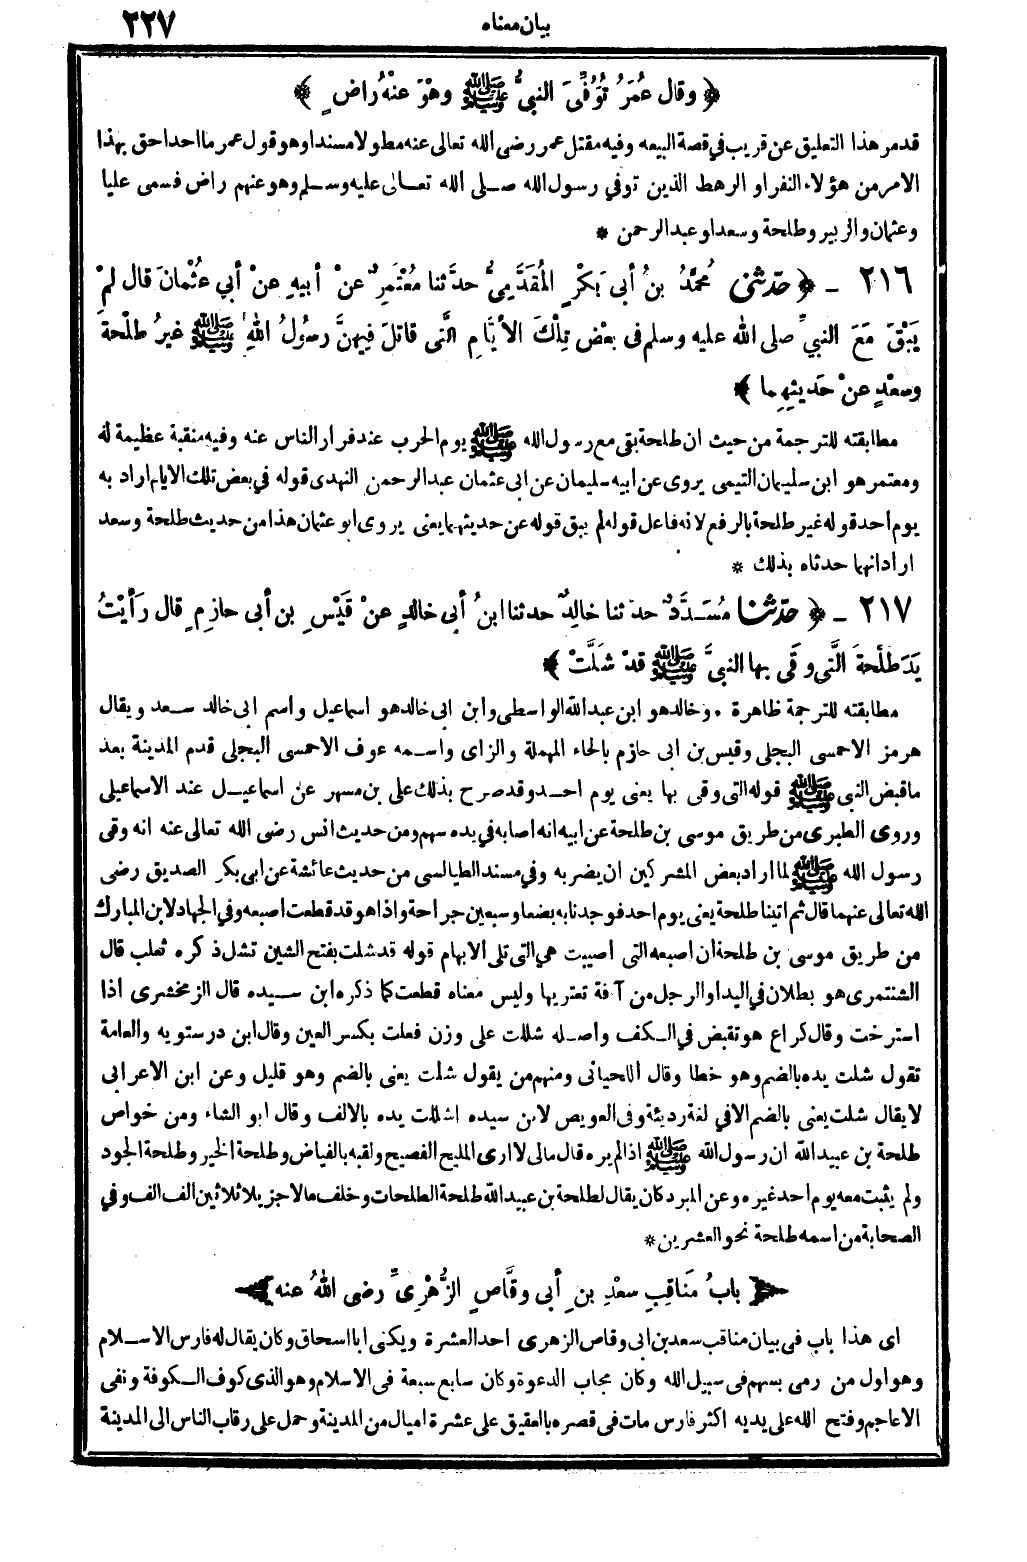 بيان معناه ٢٢٧
﴿ وقال عُمَرُ تُوُفِّىَ النبىُّ ﷺ وهْوَ عنْهُ راضٍ ﴾
قد مر هذا التعليق عن قريب في قصة البيعه وفيه مقتل عمر رضى الله تعالى عنه مطولا مسندا وهو قول عمر ما احد احق بهذا
الامر من هؤلاء النفر او الرهط الذين توفي رسول الله صلى الله تعالى عليه وسلم وهو عنهم راض فسمى عليا
وعثمان والزبير وطلحة وسعدا وعبد الرحمن *
٢١٦ ـ ﴿ حدّثنى مُحَمَّدُ بنُ أبى بَكْرٍ المُقَدَّمِىُّ حدَّثنا مُعْتَمِرٌ عنْ أبيهِ عنْ أبي عُثْمانَ قال لمْ
يَبْقَ مَعَ النبيِّ صلى الله عليه وسلم فى بعْض تِلْكَ الأيَّامِ الَّتى قاتلَ فِيهِنَّ رسولُ اللهِ ﷺ غيرُ طلْحةَ
وسعْدٍ عنْ حَديثِهِما ﴾
مطابقته للترجمة من حيث ان طلحة بقى مع رسول الله ﷺ يوم الحرب عند فرار الناس عنه وفيه منقبة عظيمة له
ومعتمر هو ابن سليمان التيمى يروى عن أبيه سليمان عن ابى عثمان عبد الرحمن النهدى قوله في بعض تلك الايام اراد به
يوم أحد قوله غير طلحة بالرفع لانه فاعل قوله لم يبق قوله عن حديثهما يعنى يروى ابو عثمان هذا من حديث طلحة وسعد
اراد انهما حدثاه بذلك *
٢١٧ ـ ﴿ حدّثنا مُسَدَّدٌ حدّثنا خالِدٌ حدثنا ابنُ أبى خالدٍ عنْ قَيْسِ بنِ أبى حازِمٍ قال رَأيْتُ
يَدَ طَلْحةَ الَّتى وقَى بها النبىَّ ﷺ قدْ شَلَّتْ ﴾
مطابقته للترجمة ظاهرة . وخالد هو ابن عبد الله الواسطى وابن ابى خالد هو اسماعيل واسم ابى خالد سعد ويقال
هرمز الاحمسى البجلى وقيس بن ابى حازم بالحاء المهملة والزاى واسمه عوف الاحمسى البجلى قدم المدينة بعد
ما قبض النبى ﷺ قوله التى وقى بها يعنى يوم احد وقد صرح بذلك على بن مسهر عن اسماعيل عند الاسماعيلى
وروى الطبرى من طريق موسى بن طلحة عن ابيه انه اصابه في يده سهم ومن حديث انس رضى الله تعالى عنه انه وقى
رسول الله ﷺ لما اراد بعض المشركين ان يضربه وفي مسند الطيالسى من حديث عائشة عن ابى بكر الصديق رضى
الله تعالى عنهما قال ثم اتينا طلحة يعنى يوم احد فوجدنا به بضعا وسبعين جراحة واذا هو قد قطعت اصبعه وفي الجهاد لابن المبارك
من طريق موسى بن طلحة أن اصبعه التى أصيبت هي التى تلى الابهام قوله قد شلت بفتح الشين تشل ذكره ثعلب قال
الشنتمرى هو بطلان في اليد او الرجل من آفة تعتريها وليس معناه قطعت كما ذكره ابن سيده قال الزمخشرى اذا
استرخت وقال كراع هو تقبض في الكف واصله شللت على وزن فعلت بكسر العين وقال ابن درستويه والعامة
تقول شلت يده بالضم وهو خطا وقال اللحيانى ومنهم من يقول شلت يعنى بالضم وهو قليل وعن ابن الاعرابى
لا يقال شلت يعنى بالضم الا في لغة رديئة وفى العويص لابن سيده اشللت يده بالالف وقال ابو الشاء ومن خواص
طلحة بن عبيد الله ان رسول الله ﷺ اذا لم يره قال مالى لا ارى المليح الفصيح ولقبه بالفياض وطلحة الخير وطلحة الجود
ولم يثبت معه يوم احد غيره وعن المبرد كان يقال لطلحة بن عبيد الله طلحة الطلحات وخلف مالا جزيلا ثلاثين الف الف وفي
الصحابة من اسمه طلحة نحو العشرين *
باب مَناقِبِ سعْدِ بنِ أبى وقَّاصٍ الزُّهْرِىِّ رضى اللهُ عنه
اى هذا باب فى بيان مناقب سعد بن ابى وقاص الزهرى احد العشرة ويكنى ابا اسحاق وكان يقال له فارس الاسلام
وهو اول من رمى بسهم فى سبيل الله وكان مجاب الدعوة وكان سابع سبعة فى الاسلام وهو الذى كوف الكوفة ونفى
الاعاجم وفتح الله على يديه اكثر فارس مات فى قصره بالعقيق على عشرة اميال من المدينة وحمل على رقاب الناس الى المدينة